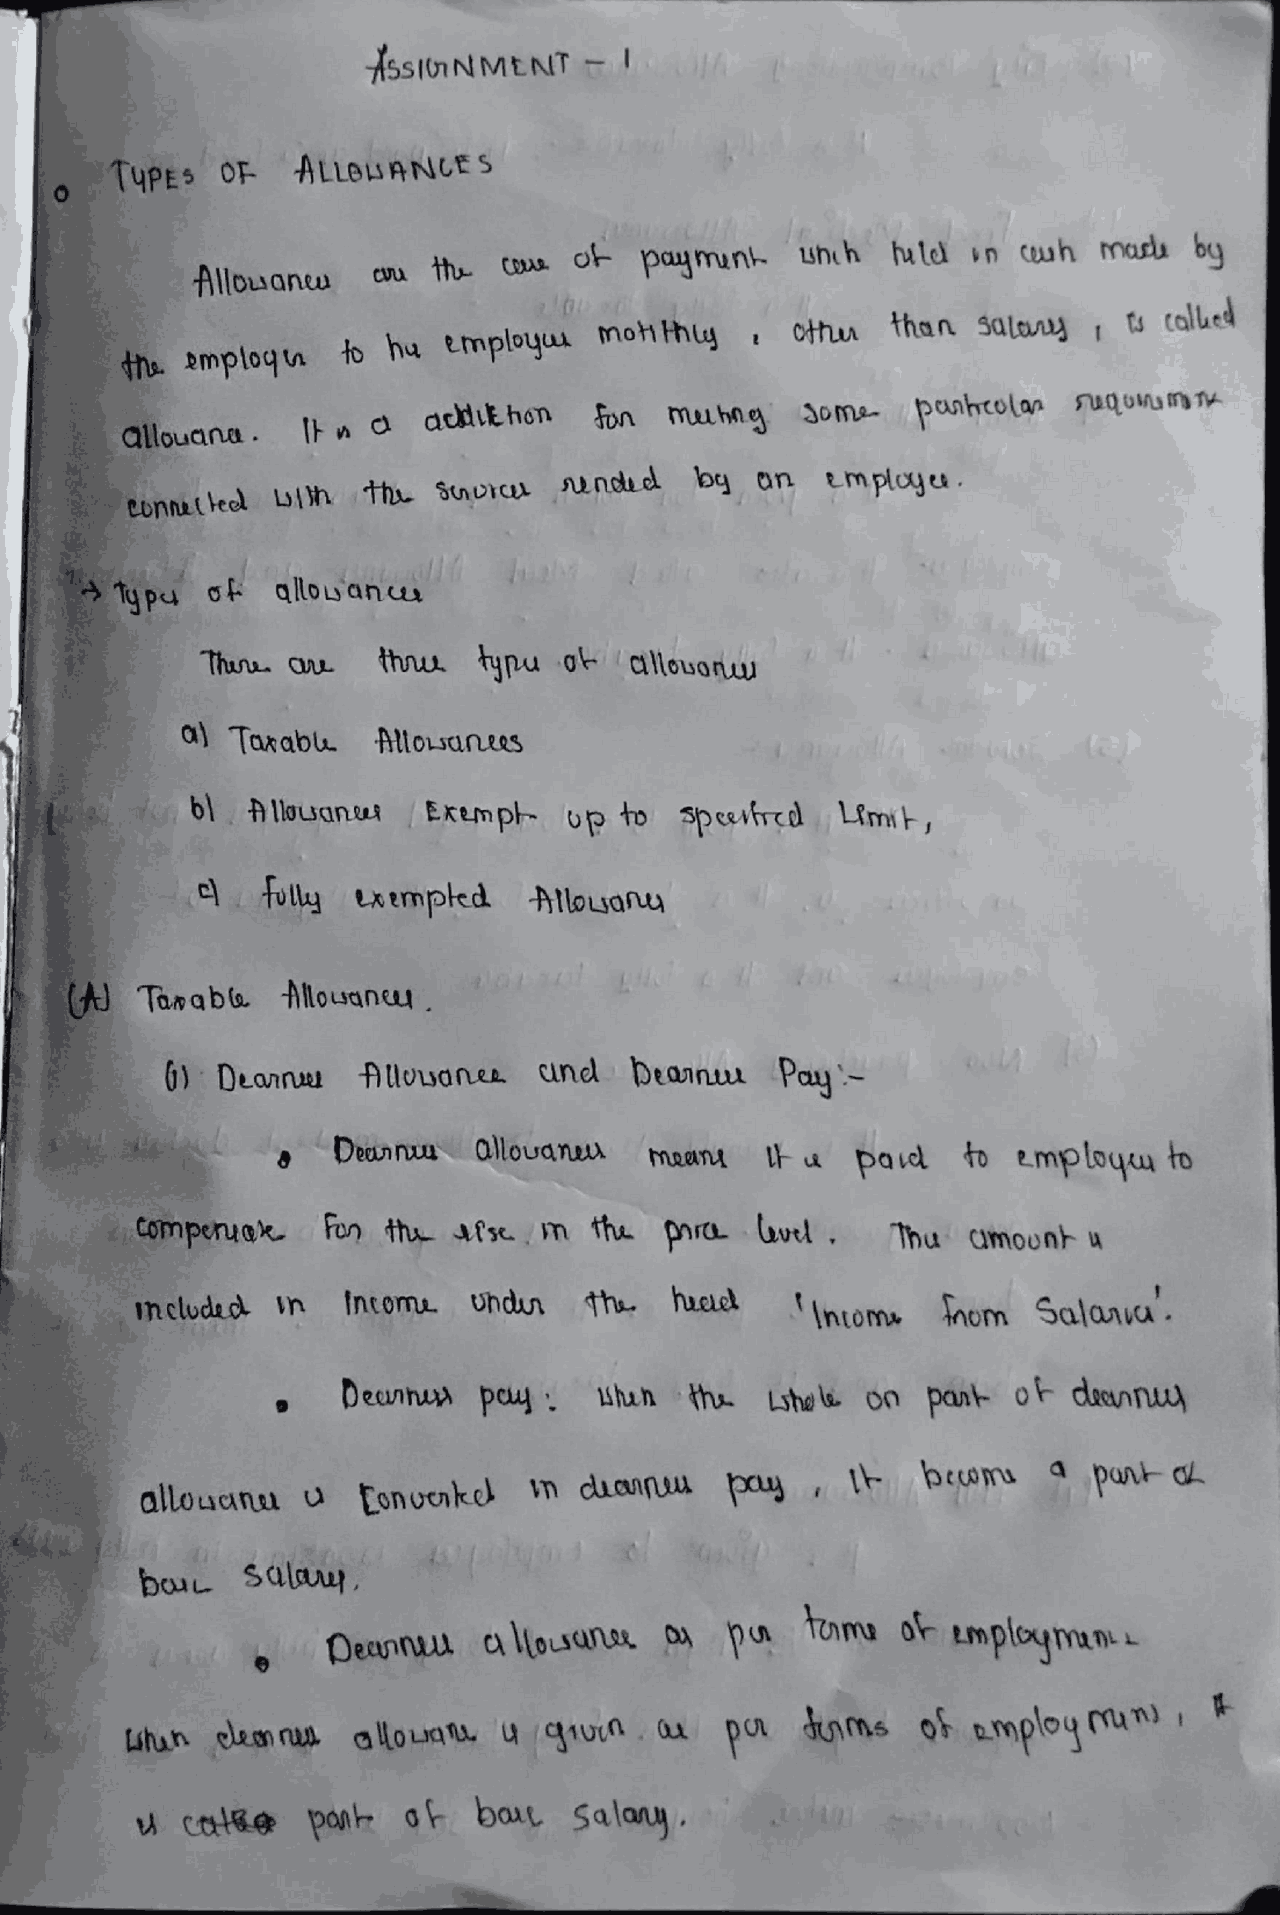 ASSIGNMENT - 1
TYPES OF ALLOWANCES
Allowances are the case of payment which held in cash made by
the employer to he employees monthly , other than salary , is called
allowance. It is a addition for meeting some particular requirement
connected with the services rended by an employee.
→ Types of allowances
There are three types of allowances
a) Taxable Allowances
b) Allowances Exempt up to specified Limit,
c) fully exempted Allowances
(A) Taxable Allowances.
(i) Dearness Allowance and Dearness Pay :-
• Dearness allowances means it is paid to employees to
compensate For the rise in the price level. This amount is
included in Income under the head 'Income from Salaries'.
• Dearness pay : When the whole or part of dearness
allowance is Converted in dearness pay , It become a part of
basic salary.
• Dearness allowances as per terms of employment :
When dearness allowance is given as per terms of employment, it
is part of basic salary.